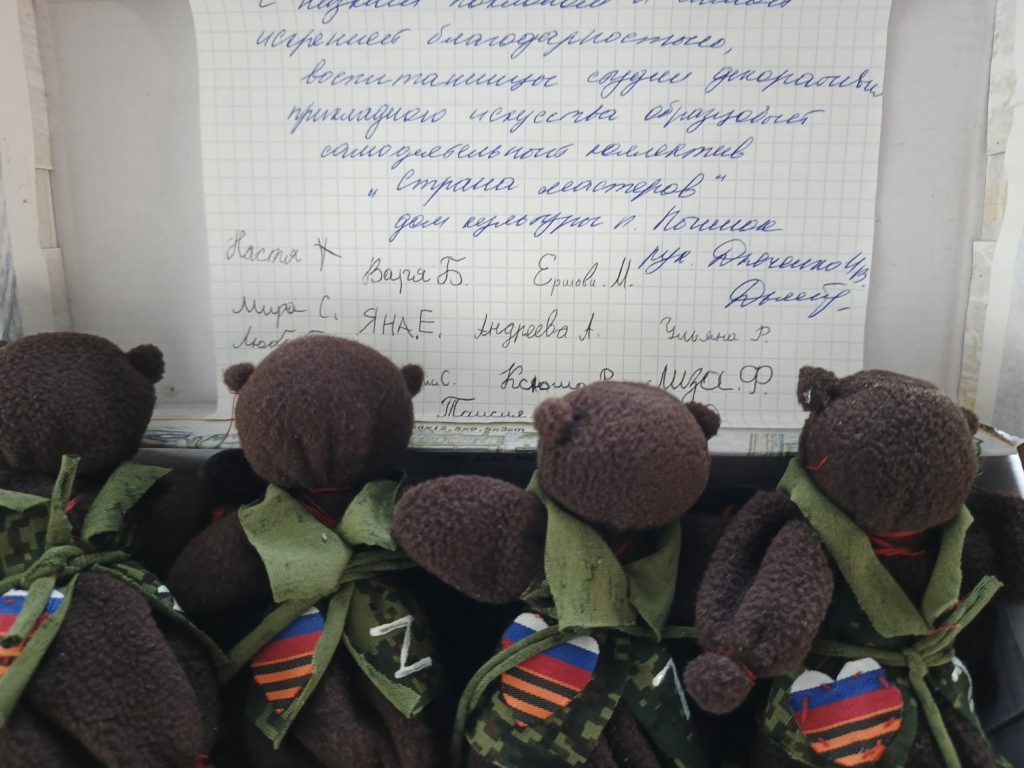 с низким поклоном и
искренней благодарностью,
воспитанницы студии декоративно
прикладного искусства образцовый
самодеятельный коллектив
"Страна мастеров"
дом культуры п.
рук. Дьяченко И.В.
Настя
Варя Б.
Ершова. М.
Мира С.
ЯНА.Е.
Андреева А.
Ульяна Р.
Люба
С.
Ксюша
ЛИЗА.Ф.
Таисия
Z